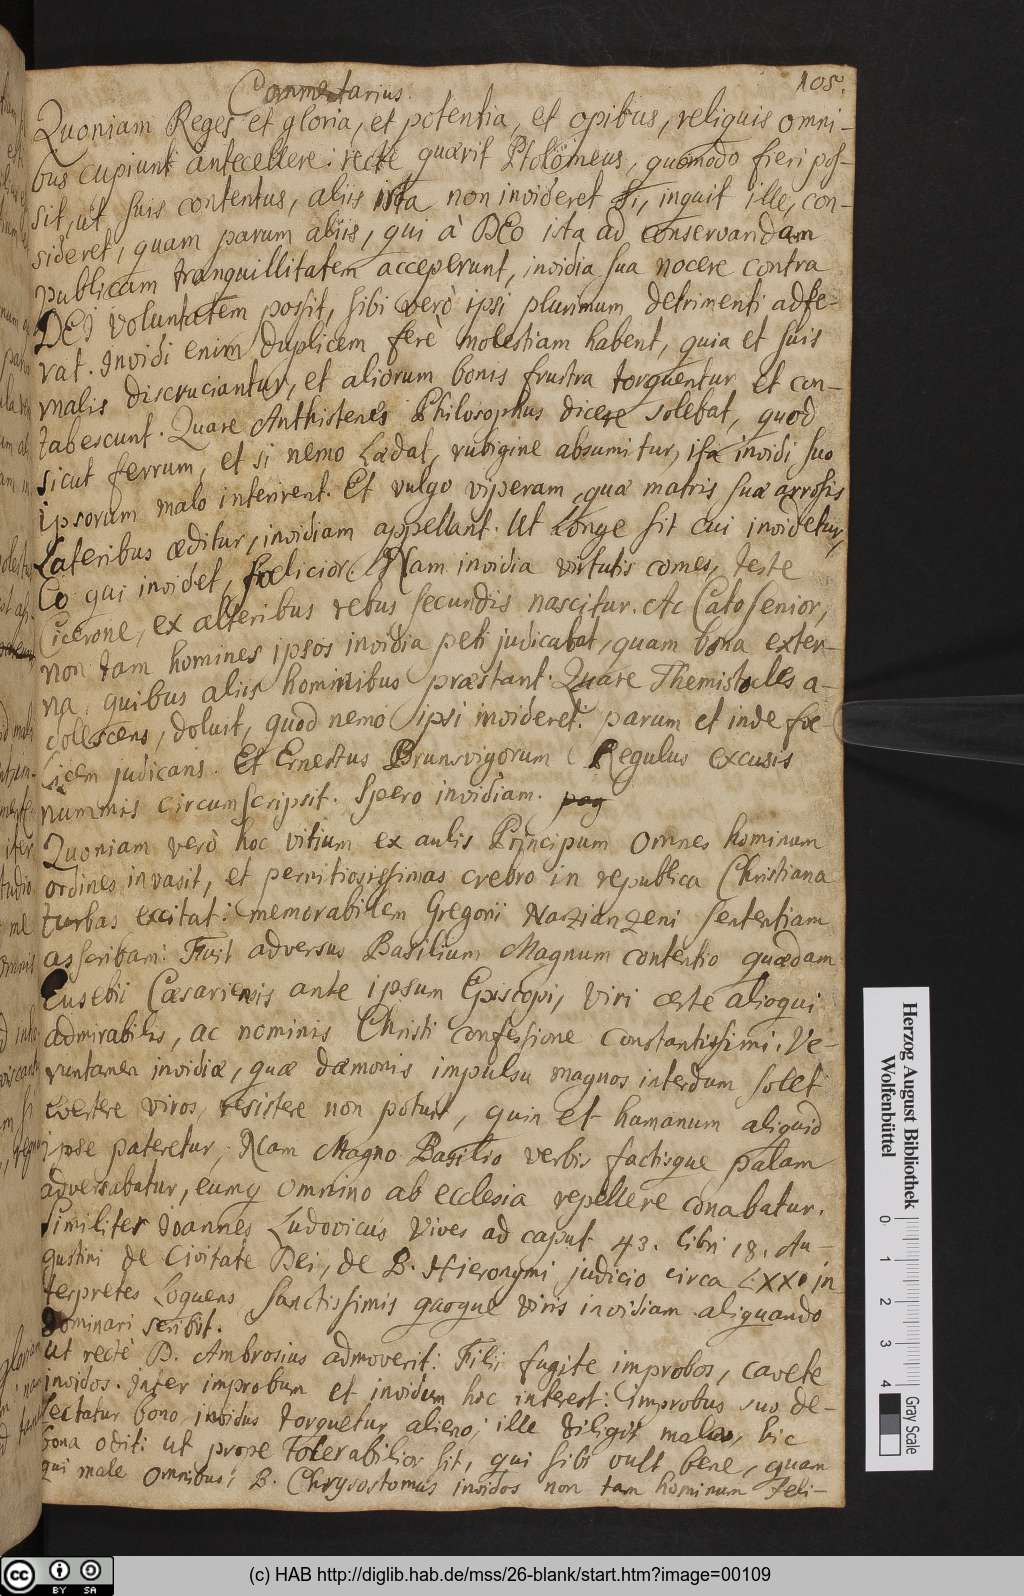 105.
Commentarius.
Quoniam Reges et gloria, et potentia, et opibus, reliquis omni-
bus cupiunt antecellere: recte quærit Ptolomeus, quomodo fieri pos-
sit, ut suis contentus, aliis ista non invideret Si, inquit ille, con-
sideret, quam parum aliis, qui à DEo ista ad conservandam
publicam tranquillitatem acceperunt, invidia sua nocere contra
DEI voluntatem possit, sibi verò ipsi plurimum detrimenti adfe-
rat. Invidi enim duplicem ferè molestiam habent, quia et suis
malis discruciantur, et aliorum bonis frustra torquentur et con-
tabescunt. Quare Anthistenes Philosophus dicere solebat, quod
sicut ferrum, et si nemo Lædat, rubigine absumitur, ita invidi suo
ipsorum malo interirent. Et vulgo viperam, quæ matris suæ arrosis
Lateribus æditur, invidiam appellant. Ut Longe sit cui invidetur,
Eo qui invidet, fœlicior. Nam invidia virtutis comes, teste
Cicerone, ex alteribus rebus secundis nascitur. Ac Cato senior,
non tam homines ipsos invidia peti judicabat, quam bona exter-
na, quibus aliis hominibus præstant. Quare Themistocles a-
dolescens, doluit, quod nemo ipsi invideret: parum et inde fœ-
licem judicans. Et Ernestus Brunsvigorum Regulus excusis
nummis circumscripsit. Spero invidiam. pag
Quoniam verò hoc vitium ex aulis Principum omnes hominum
ordines invasit, et pernitiosissimas crebro in republica Christiana
turbas excitat: memorabilem Gregorii Nazianzeni sententiam
asscribam: Fuit adversus Basilium Magnum contentio quædam
Eusebii Cæsariensis ante ipsum Episcopi, viri certe alioqui
admirabilis, ac nominis Christi confessione constantissimi. Ve-
runtamen invidiæ, quæ dæmonis impulsu magnos interdum solet
evertere viros, resistere non potuit, quin et humanum aliquid
ipse pateretur. Nam Magno Basilio verbis factisque palam
adversabatur, eumq omnino ab ecclesia repellere conabatur.
Similiter Joannes Ludovicus Vives ad caput 43. libri 18. Au-
gustini de Civitate Dei, de B. Hieronymi judicio circa LXX in
terpretes Loquens sanctissimis quoque viris invidiam aliquando
dominari scribit.
Ut rectè D. Ambrosius admoverit: Filii fugite improbos, cavete
invidos. Inter improbum et invidum hoc interest: Improbus suo de-
lectatur bono, invidus torquetur alieno; ille diligit mala, hic
bona odit: ut prope tolerabilior sit, qui sibi vult bene, quam
qui male omnibus; B. Chrysostomus invidos non tam hominum feli-
Herzog August Bibliothek
Wolfenbüttel
0 1 2 3 4
Gray Scale
cc BY SA
(c) HAB http://diglib.hab.de/mss/26-blank/start.htm?image=00109